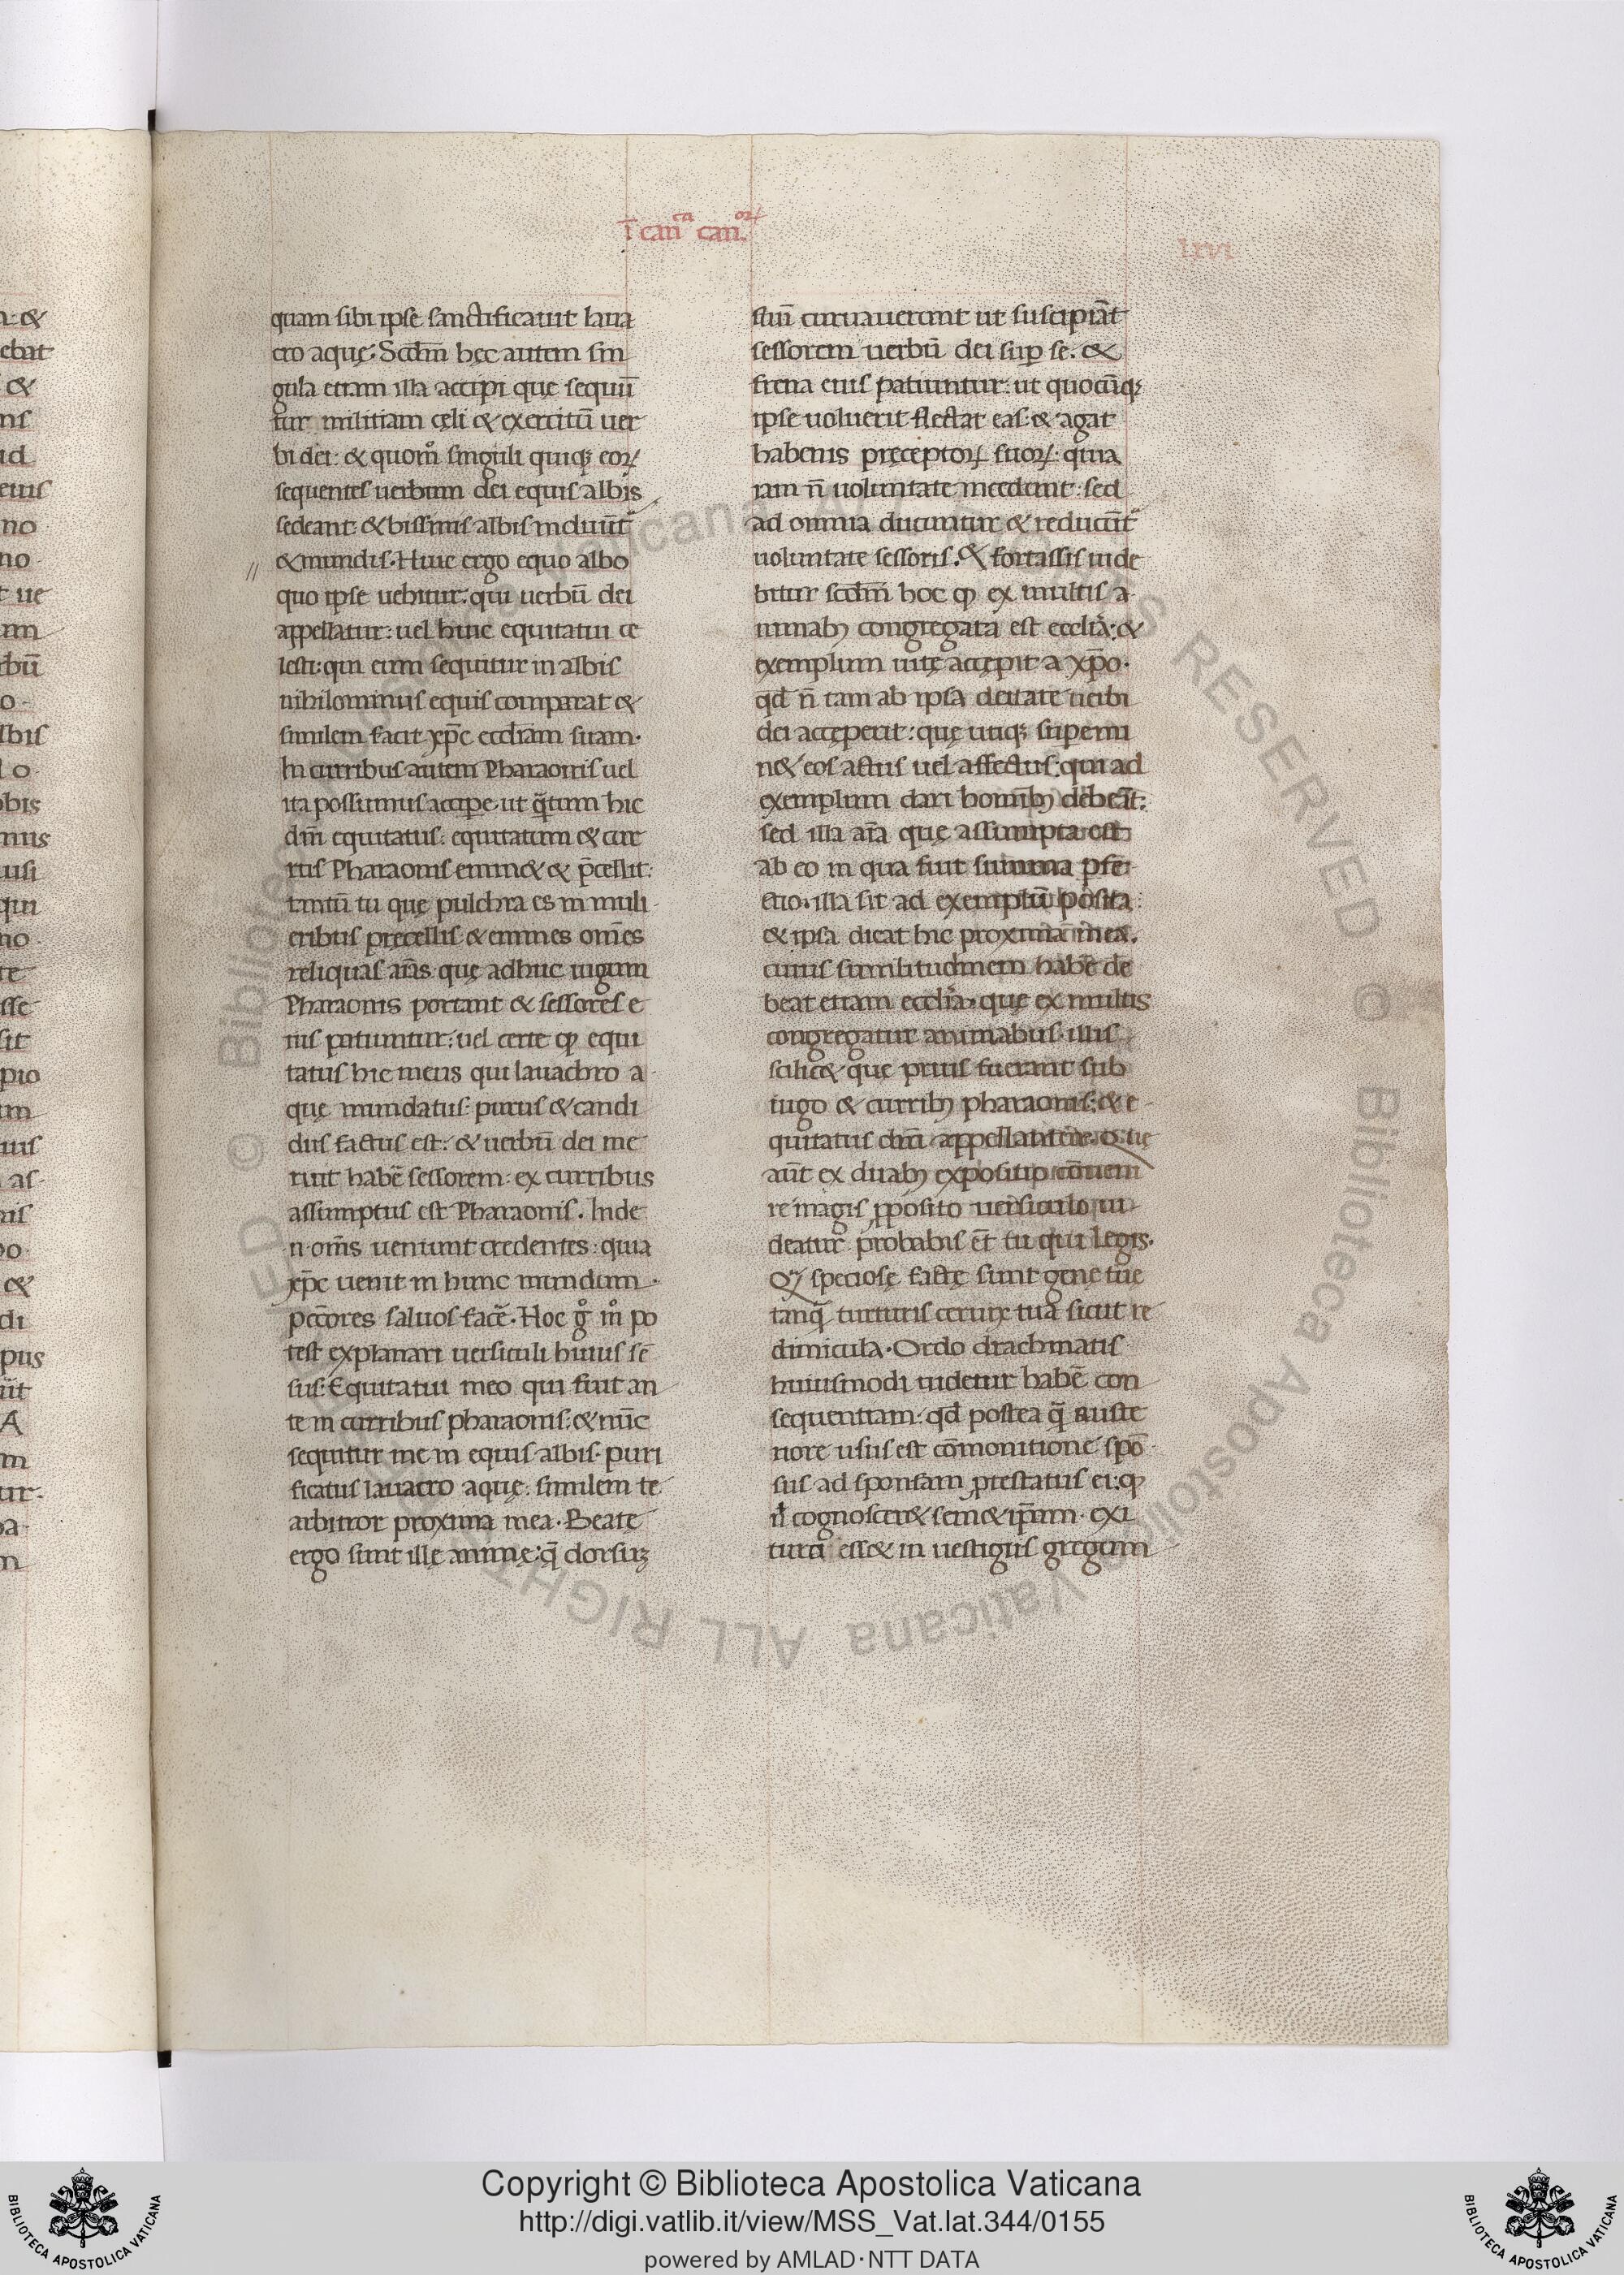 ī can̄ ca can. oꝝ
lxvi
quam sibi ipse sanctificauit laua
cro aquę. Scdm̄ hęc autem sin
gula etiam illa accipi quę sequū
tur militiam cęli & exercitū uer
bi dei: & quom̊ singuli quiqꝫ eoꝝ
sequentes uerbum dei equis albis
sedeant. & bissinis albis induūt᷑
& mundis. Huic ergo equo albo
quo ipse uehitur: qui uerbū dei
appellatur: uel huic equitatui ce
lesti: qui eum sequitur in albis
nihilominus equis comparat &
similem facit xp̄c eccl̄iam suam.
In curribus autem Pharaonis uel
ita possumus accipe. ut q̄tum hic
dn̄i equitatus. equitatum & cur
rus Pharaonis emin& & p̄cellit.
tantū tu que pulchra es in muli
eribus precellis & emines om̄es
reliquas aīas quę adhuc iugum
Pharaonis portant & sessores e
ius patiuntur: uel certe ꝙ equi
tatus hic meus qui lauachro a
quę mundatus. purus & candi
dus factus est: & uerbū dei me
ruit habē sessorem. ex curribus
assumptus est Pharaonis. Inde
n. om̄s ueniunt credentes: quia
xp̄c uenit in hunc mundum.
pecc̄ores saluos facē. Hoc g̊ m̊ po
test explanari uersiculi huius sē
sus. Equitatui meo qui fuit an
te in curribus pharaonis: & nūc
sequitur me in equis albis. puri
ficatus lauacro aquę. similem te
arbitror proxima mea. Beatę
ergo sunt illę animę: q̄ dorsuꝫ
suū curuauerunt ut suscipiāt
sessorem uerbū dei sup̱ se. &
frena eius patiuntur: ut quocūqꝫ
ipse uoluerit flectat eas. & agat
habenis pręceptoꝝ suoꝝ. quia
iam n̄ uoluntate incedunt: sed
ad omnia ducuntur & reducūt᷑
uoluntate sessoris. & fortassis uide
bitur scdm̄ hoc ꝙ ex multis a
nimabꝫ congregata est eccl̄ia: &
exemplum uitę accępit a xp̄o.
qd̄ n̄ tam ab ipsa deitate uerbi
dei accęperit: quę utiqꝫ supemi
n& eos actus uel affectus. qui ad
exemplum dari homībꝫ debeāt:
sed illa aīa quę assumpta est
ab eo in qua fuit summa pfe
ctio. illa sit ad exemplū posita:
& ipsa dicat hic proxima mea.
cuius similitudinem habē de
beat etiam eccl̄ia. quę ex multis
congregatur animabus. illis
scilic& quę prius fuerant sub
iugo & curribꝫ pharaonis. & e
quitatus dn̄i appellantur
aūt ex duabꝫ expositiō conueni
re magis p̱posito uersiculo ui
deatur. probabis ēt tu qui legis.
Qꝫ speciosę factę sunt genę tuę
tanq̄ turturis ceruix tua sicut re
dimicula. Ordo drachmatis
huiusmodi uidetur habē con
sequentiam: qd̄ postea q̄ auste
riore usus est cōmonitione spō
sus ad sponsam p̱testatus ei: ꝙ
n̄ cognoscer& sem&ip̄am. exi
tura ess& in uestigiis gregum
Copyright © Biblioteca Apostolica Vaticana
http://digi.vatlib.it/view/MSS_Vat.lat.344/0155
powered by AMLAD·NTT DATA